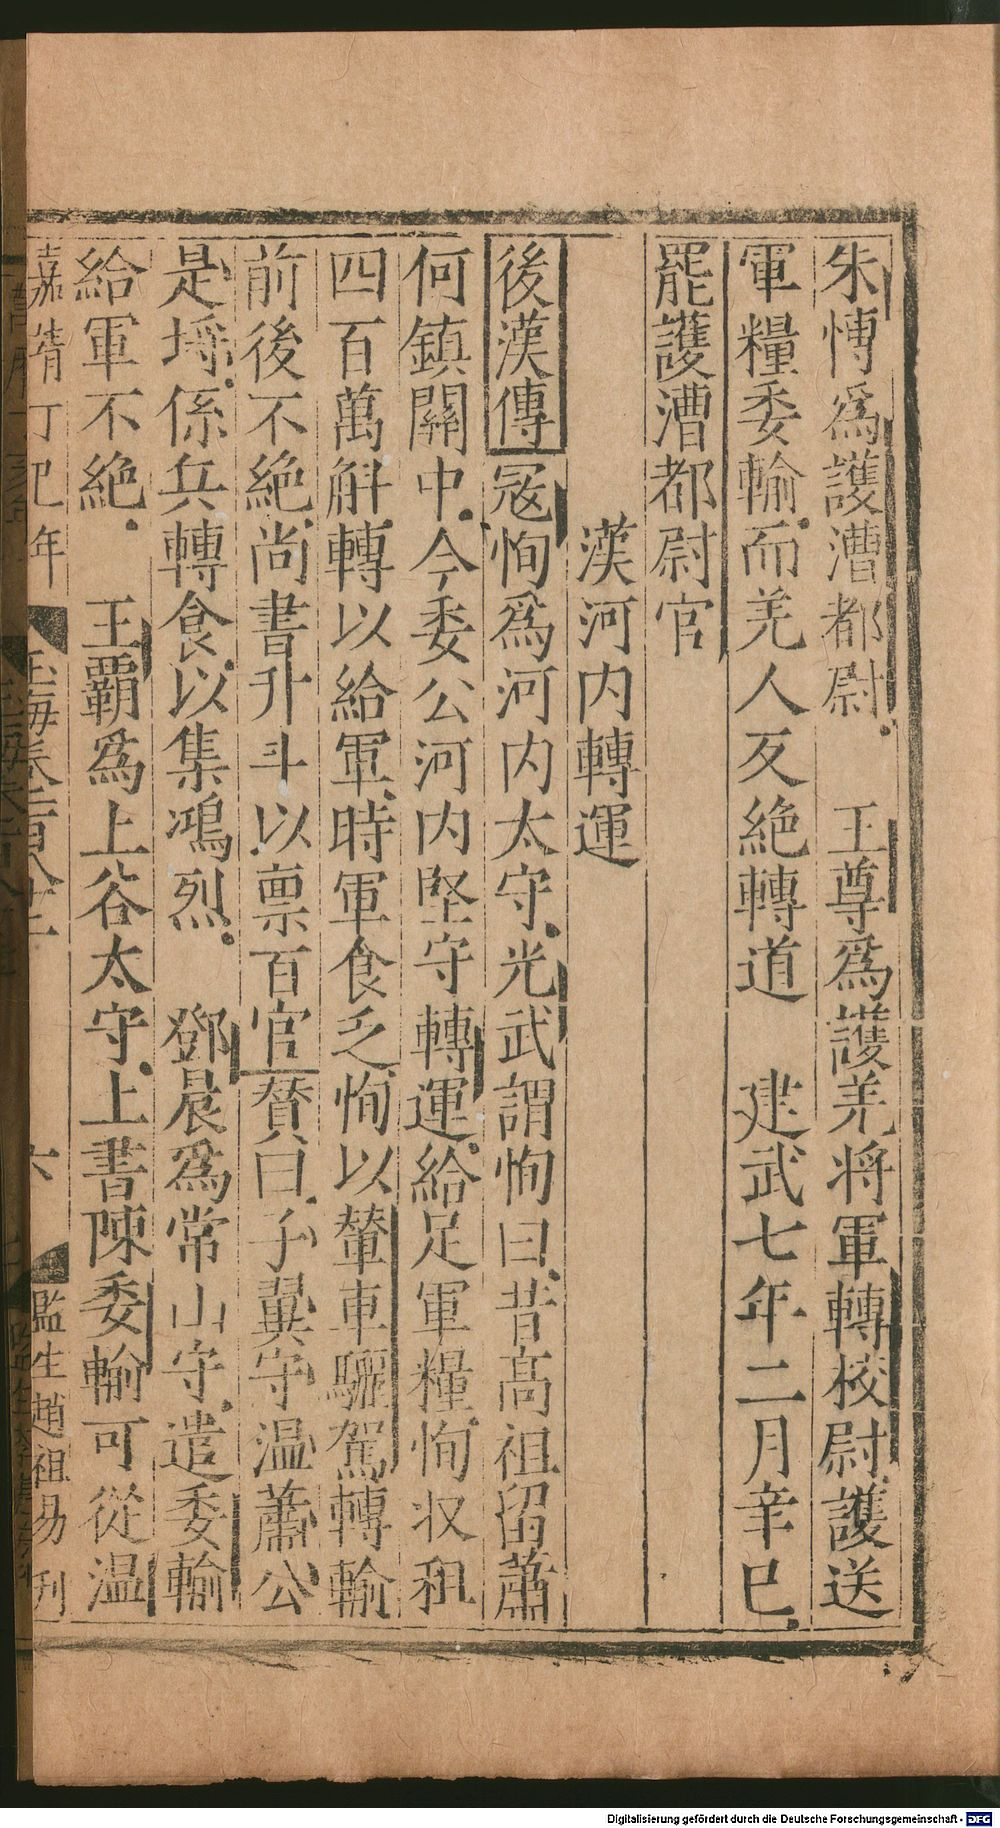 朱慱爲護漕都尉　王尊爲護羌将軍轉校尉護送
軍糧委輸而羌人反絶轉道　建武七年二月辛巳
罷護漕都尉官
漢河内轉運
後漢傳冦恂爲河内太守光武謂恂曰昔髙祖留蕭
何鎮關中今委公河内堅守轉運給足軍糧恂収租
四百萬斛轉以給軍時軍食乏恂以輦車驪駕轉輸
前後不絶尚書升斗以禀百官賛曰子翼守温蕭公
是埒係兵轉食以集鴻烈　鄧晨爲常山守遣委輸
給軍不絶　王覇爲上谷太守上書陳委輸可從温
嘉靖丁巳年　玉海卷一百八十二　六　監生趙祖易刊
Digitalisierung gefördert durch die Deutsche Forschungsgemeinschaft - DFG